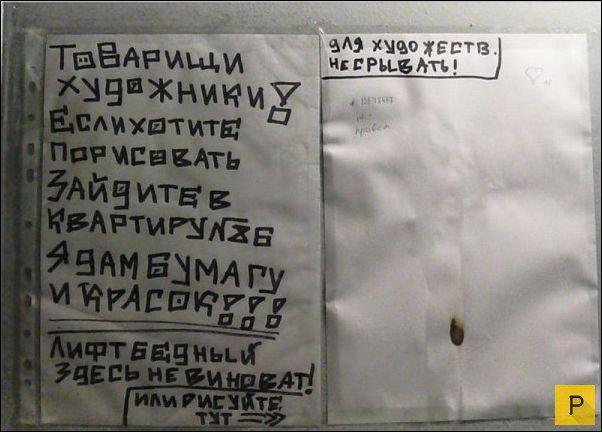 ТОВАРИЩИ
ХУДОЖНИКИ!
ЕСЛИ ХОТИТЕ
ПОРИСОВАТЬ
ЗАЙДИТЕ В
КВАРТИРУ №86
Я ДАМ БУМАГУ
И КРАСОК!!!
ЛИФТ БЕДНЫЙ
ЗДЕСЬ НЕ ВИНОВАТ!
ИЛИ РИСУЙТЕ
ТУТ =>
ДЛЯ ХУДОЖЕСТВ.
НЕ СРЫВАТЬ!
P